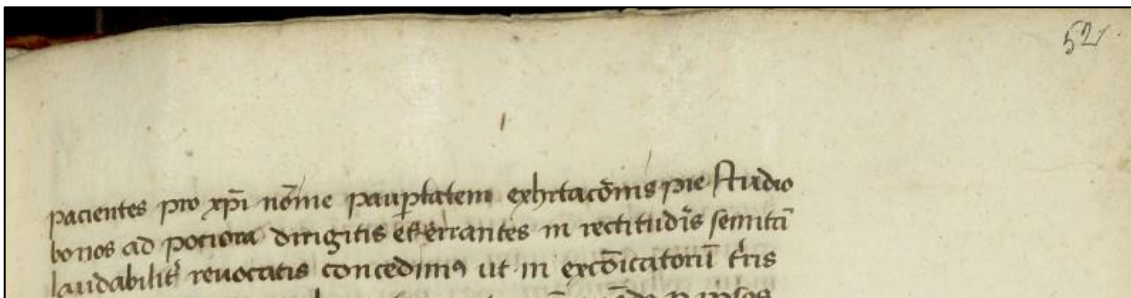 52
pacientes pro xp̄i nōīe paup̱tatem exhrtacōīs pie studio
bonos ad pociora dirigitis et errantes in rectitudīs semitā
laudabilit̛ reuocatis concedimꝰ ut in excōīcatorū t̛ris